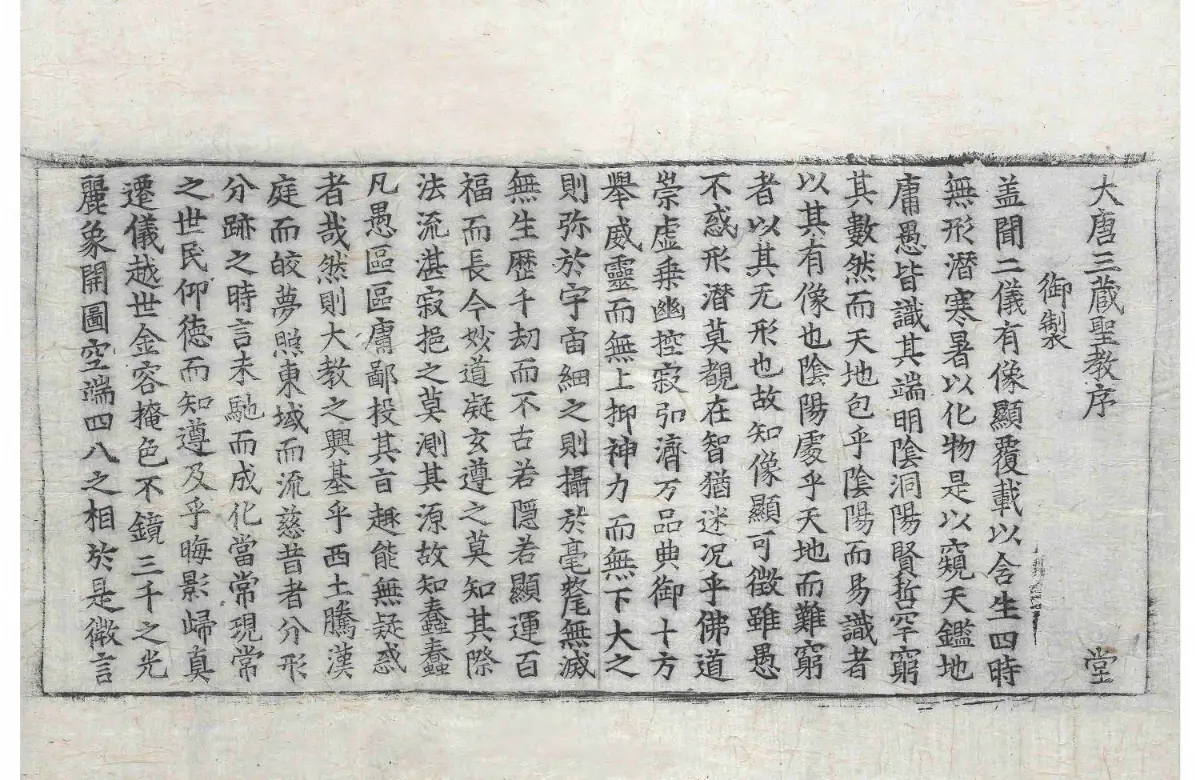 大唐三蔵聖教序　堂
御製
盖聞二儀有像顯覆載以含生四時
無形潜寒暑以化物是以窺天鑑地
庸愚皆識其端明陰洞陽賢哲罕窮
其數然而天地包乎陰陽而易識者
以其有像也陰陽處乎天地而難窮
者以其无形也故知像顯可徴雖愚
不惑形潜莫覩在智猶迷况乎佛道
崇虚乗幽控寂弘濟万品典御十方
舉威靈而無上抑神力而無下大之
則弥於宇宙細之則攝於毫氂無滅
無生歴千劫而不古若隱若顯運百
福而長今妙道凝玄遵之莫知其際
法流湛寂挹之莫測其源故知蠢蠢
凡愚區區庸鄙投其旨趣能無疑惑
者哉然則大教之興基乎西土騰漢
庭而皎夢照東域而流慈昔者分形
分跡之時言未馳而成化當常現常
之世民仰徳而知遵及乎晦影歸真
遷儀越世金容掩色不鏡三千之光
麗象開圖空端四八之相於是微言